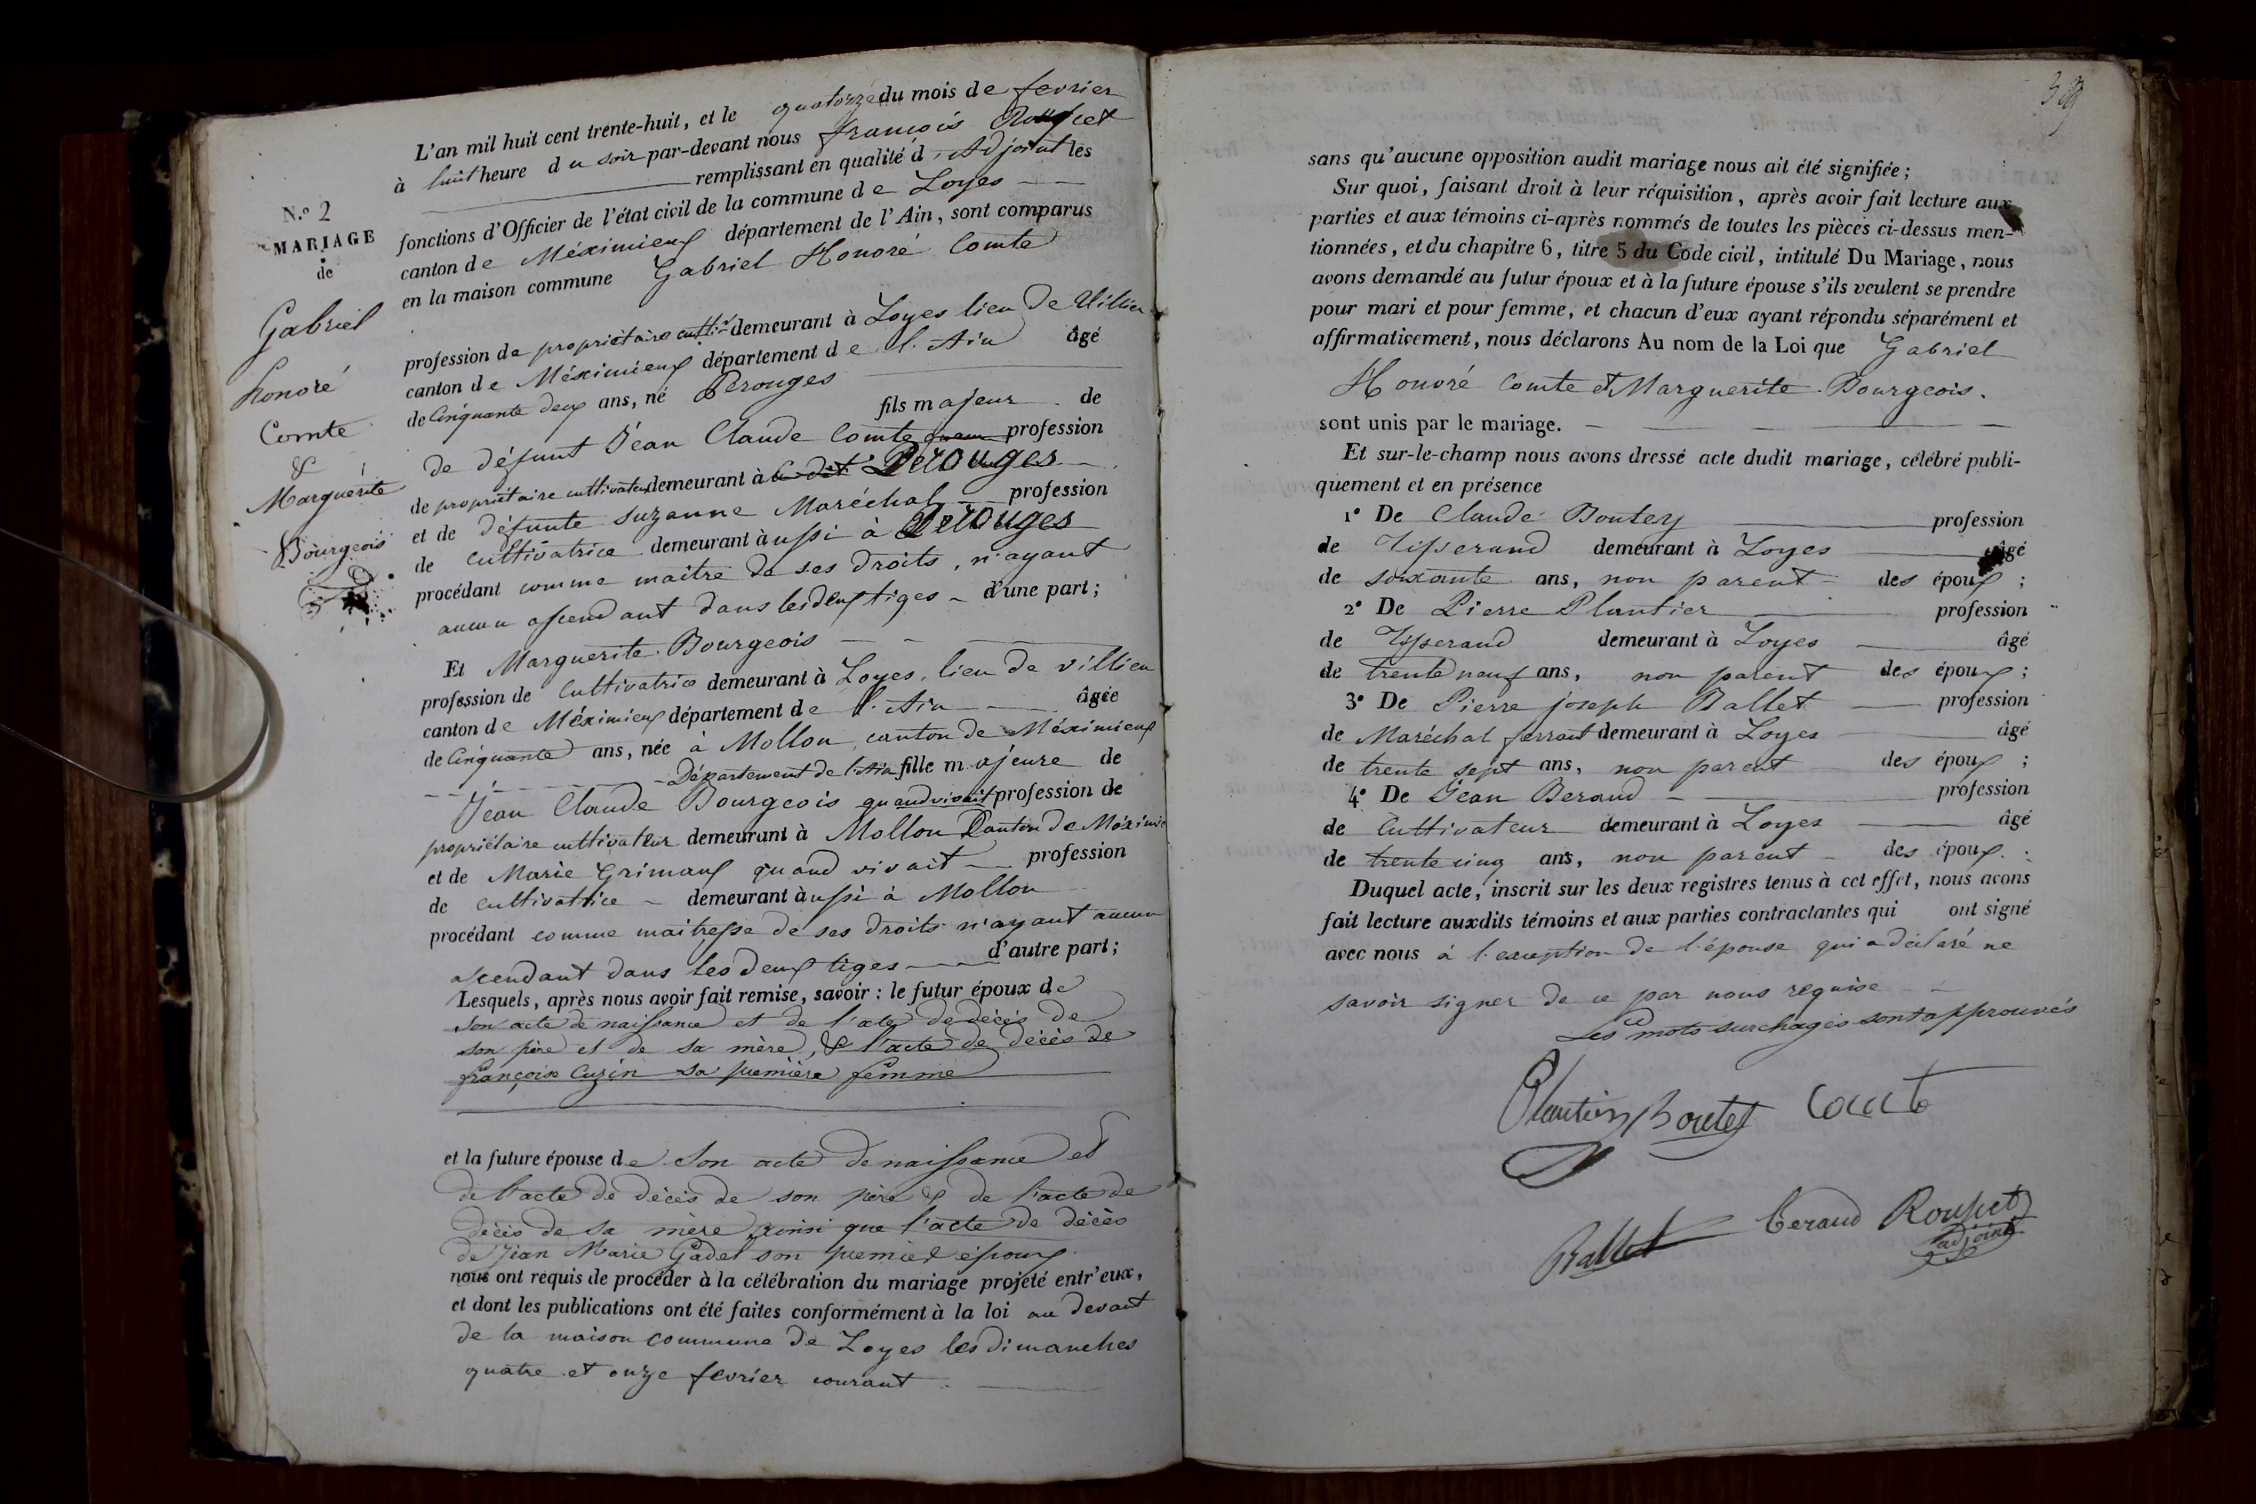 L'an mil huit cent trente-huit, et le quatorze du mois de fevrier
à huit heure du soir par-devant nous françois Rousset
remplissant en qualité d'Adjoint les
fonctions d'Officier de l'état civil de la commune de Loyes
canton de Méximieux département de l'Ain, sont comparus
en la maison commune Gabriel Honoré Comte
N.º 2
MARIAGE
de
Gabriel
honoré
Comte
&
Marguerite
Bourgeois
profession de propriétaire cultiv. demeurant à Loyes lieu de Villieu
canton de Méximieux département de l'Ain âgé
de Cinquante deux ans, né Perouges
fils majeur de
de défunt Jean Claude Comte profession
de propriétaire cultivateur demeurant à Perouges
et de défunte suzanne Maréchal profession
de cultivatrice demeurant aussi à Perouges
procédant comme maitre de ses droits, n'ayant
aucun assendant dans les deux tiges d'une part;
Et Marguerite Bourgeois
profession de Cultivatrice demeurant à Loyes, lieu de villieu
canton de Méximieux département de l'Ain âgée
de Cinquante ans, née à Mollon, canton de Méximieux
Département de l'Ain fille majeure de
Jean Claude Bourgeois quand vivait profession de
propriétaire cultivateur demeurant à Mollon Canton de Méximie
et de Marie Grimaux quand vivait profession
de cultivatrice demeurant aussi à Mollon
procédant comme maitresse de ses droits n'ayant aucun
ascendant dans les deux tiges d'autre part;
Lesquels, après nous avoir fait remise, savoir : le futur époux de
son acte de naissance et de l'acte de décès de
son père et de sa mère, & l'acte de décès de
françoise Cuzin sa première femme
et la future épouse de Son acte de naissance et
de l'acte de décès de son père & de l'acte de
décès de sa mère ainsi que l'acte de décès
de Jean Marie Gadel son premier époux
nous ont requis de procéder à la célébration du mariage projeté entr'eux,
et dont les publications ont été faites conformément à la loi au devant
de la maison commune de Loyes les dimanches
quatre et onze fevrier courant.
sans qu'aucune opposition audit mariage nous ait été signifiée;
Sur quoi, faisant droit à leur réquisition, après avoir fait lecture aux
parties et aux témoins ci-après nommés de toutes les pièces ci-dessus men-
tionnées, et du chapitre 6, titre 5 du Code civil, intitulé Du Mariage, nous
avons demandé au futur époux et à la future épouse s'ils veulent se prendre
pour mari et pour femme, et chacun d'eux ayant répondu séparément et
affirmativement, nous déclarons Au nom de la Loi que Gabriel
Honoré Comte et Marguerite Bourgeois.
sont unis par le mariage.
Et sur-le-champ nous avons dressé acte dudit mariage, célébré publi-
quement et en présence
1º De Claude Boutey profession
de Tisserand demeurant à Loyes âgé
de soixante ans, non parent des époux;
2º De Pierre Plantier profession
de Tisserand demeurant à Loyes âgé
de trente neuf ans, non parent des époux;
3º De Pierre joseph Ballet profession
de Maréchal ferrant demeurant à Loyes âgé
de trente sept ans, non parent des époux;
4º De Jean Beraud profession
de Cultivateur demeurant à Loyes âgé
de trente cinq ans, non parent des époux.
Duquel acte, inscrit sur les deux registres tenus à cet effet, nous avons
fait lecture auxdits témoins et aux parties contractantes qui ont signé
avec nous à l'exception de l'épouse qui a déclaré ne
savoir signer de ce par nous requise
Les mots surchagés sont approuvés
Plantier Boutey Comte
Ballet Beraud Rousset
adjoint